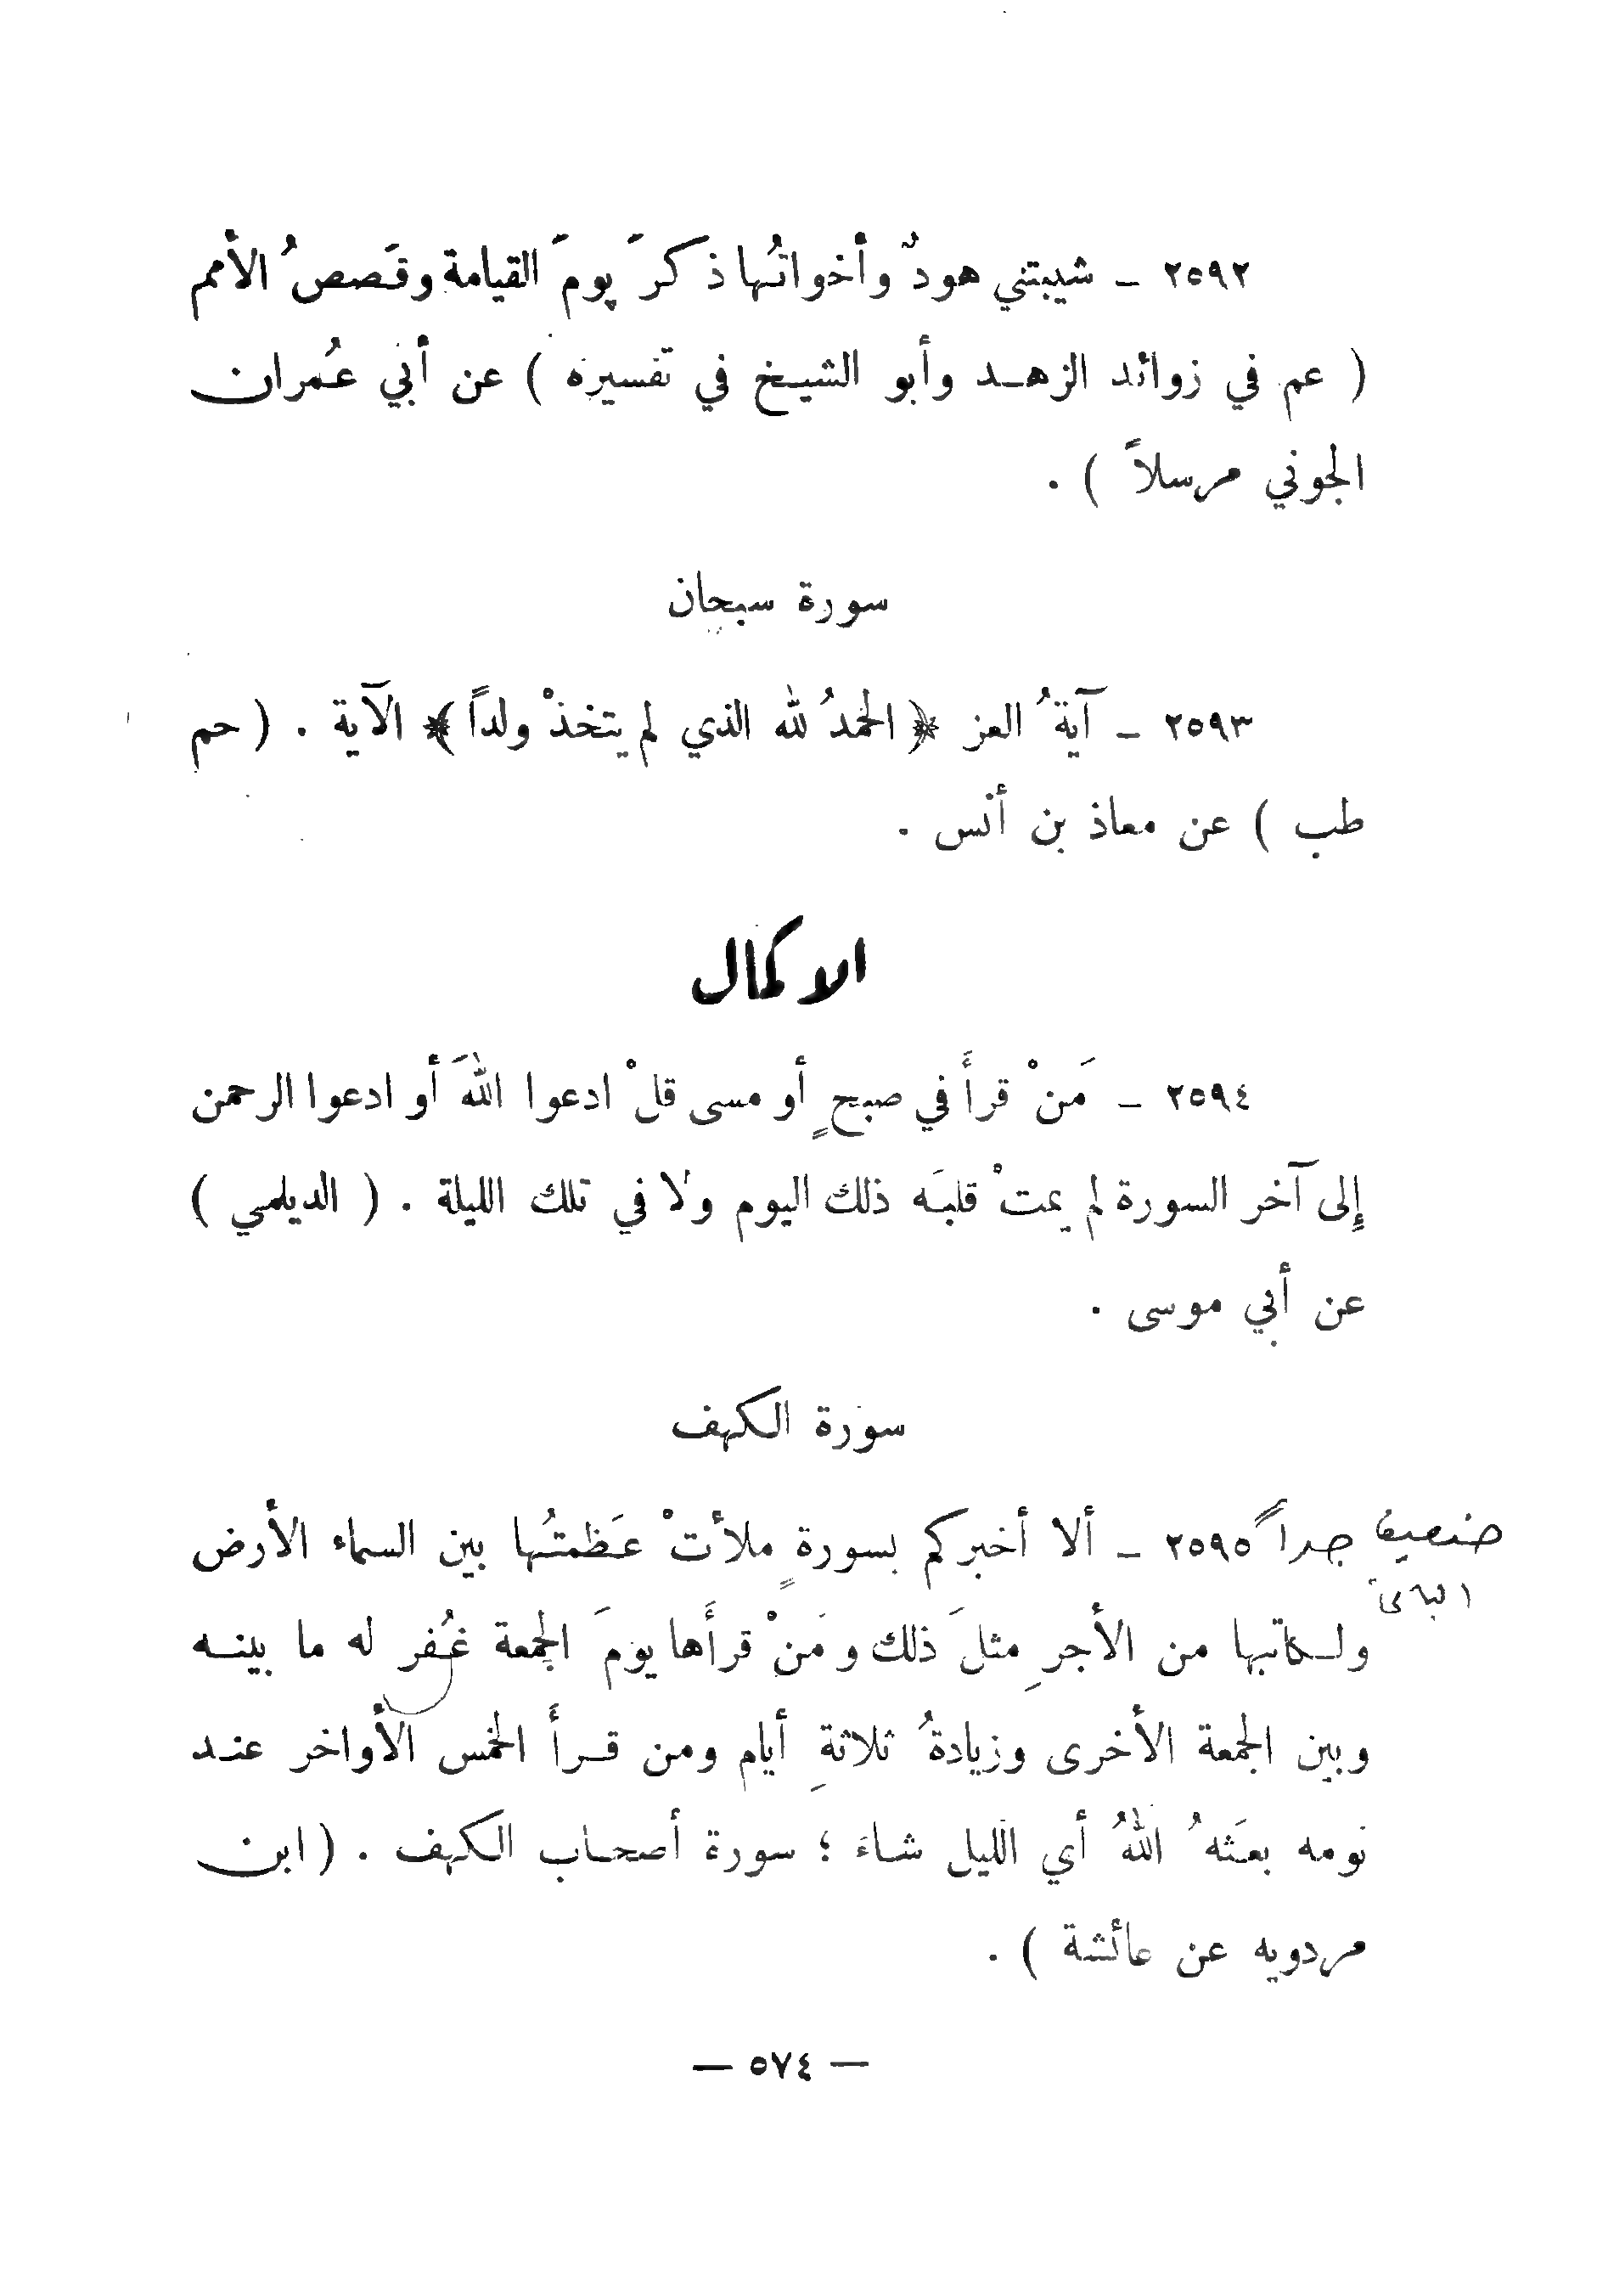 ٢٥٩٢ ـ شيبتني هودٌ وأخواتُها ذكرَ يومَ القيامة وقَصصُ الأمم
( عم في زوائد الزهـد وأبو الشيـخ في تفسيره ) عن أبي عُمران
الجوني مرسلاً ) .
سورة سبحان
٢٥٩٣ ـ آيةُ العز ﴿ الحمدُ لله الذي لم يتخذْ ولداً ﴾ الآية . ( حم
طب ) عن معاذ بن أنس .
الاكمال
٢٥٩٤ ـ مَنْ قرأَ في صبحٍ أو مسى قلْ ادعوا اللهَ أو ادعوا الرحمن
إلى آخر السورة لم يمتْ قلبَه ذلك اليوم ولا في تلك الليلة . ( الديلمي )
عن أبي موسى .
سورة الكهف
ضعيف جداً ٢٥٩٥ ـ ألا أخبركم بسورةٍ ملأتْ عَظمتُها بين السماء الأرض
ولـكاتبها من الأجرِ مثلَ ذلك ومَنْ قرأَها يومَ الجمعة غُفر له ما بينـه
وبين الجمعة الأخرى وزيادةُ ثلاثةِ أيام ومن قـرأَ الخمس الأواخر عنـد
نومه بعَثهُ اللهُ أي الليل شـاءَ ؛ سورة أصحـاب الكهف . ( ابن
مردويه عن عائشة ) .
— ٥٧٤ —